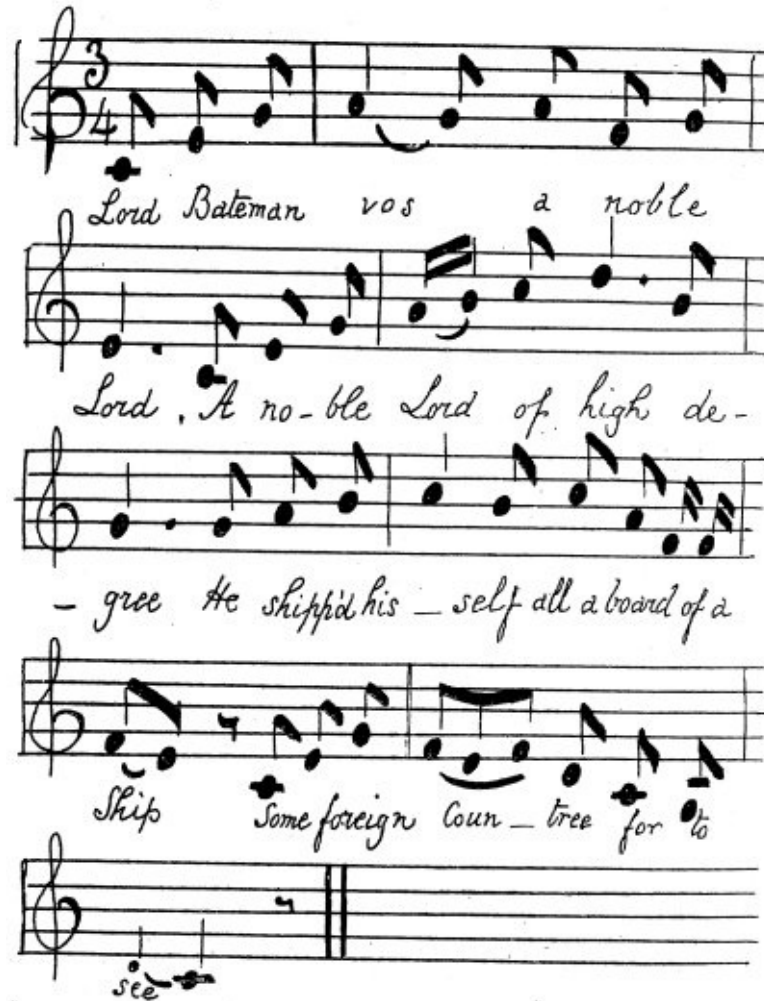 3
4
Lord Bateman vos a noble
Lord, A no-ble Lord of high de-
- gree He shipp'd his - self all aboard of a
Ship Some foreign Coun - tree for to
see